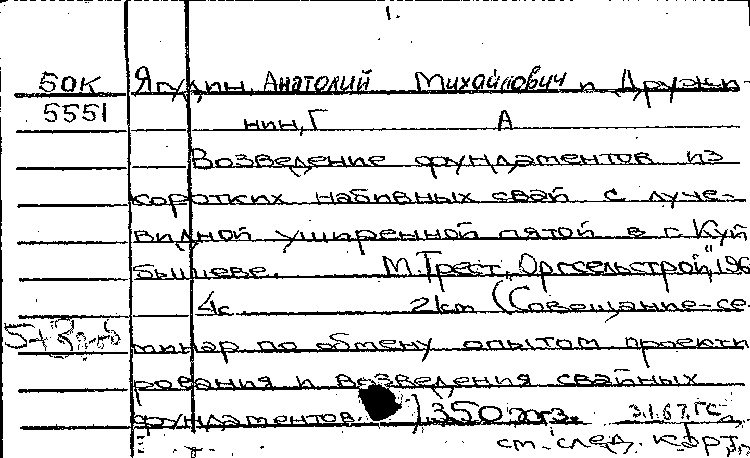 1.
БОК Ягудин, Анатолий Михайлович и Дружи-
5551 нин, Г А
Возведение фундаментов из
коротких набивных свай с луче-
видной уширенной пятой в г. Куй
бышеве. М. Трест „Оргсельстрой", 196
4с. 2км (Совещание-се
минар по обмену опытом проекти
рования и возведения свайных
фундаментов. ) 350 экз. 3.1.67.
см. след. карт.